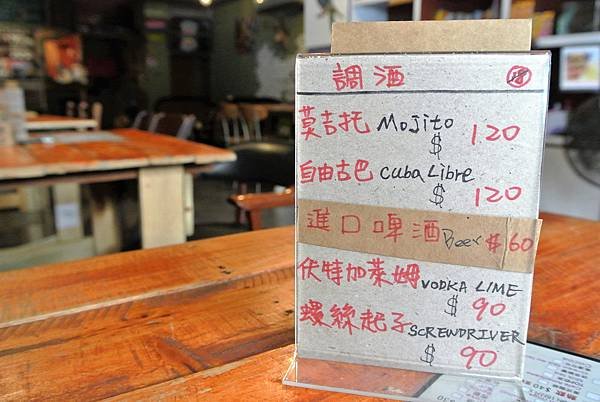 調酒 酒
莫吉托 Mojito
$ 120
自由古巴 Cuba Libre
$ 120
進口啤酒 Beer $60
伏特加萊姆 VODKA LIME
$ 90
螺絲起子 SCREWDRIVER
$ 90